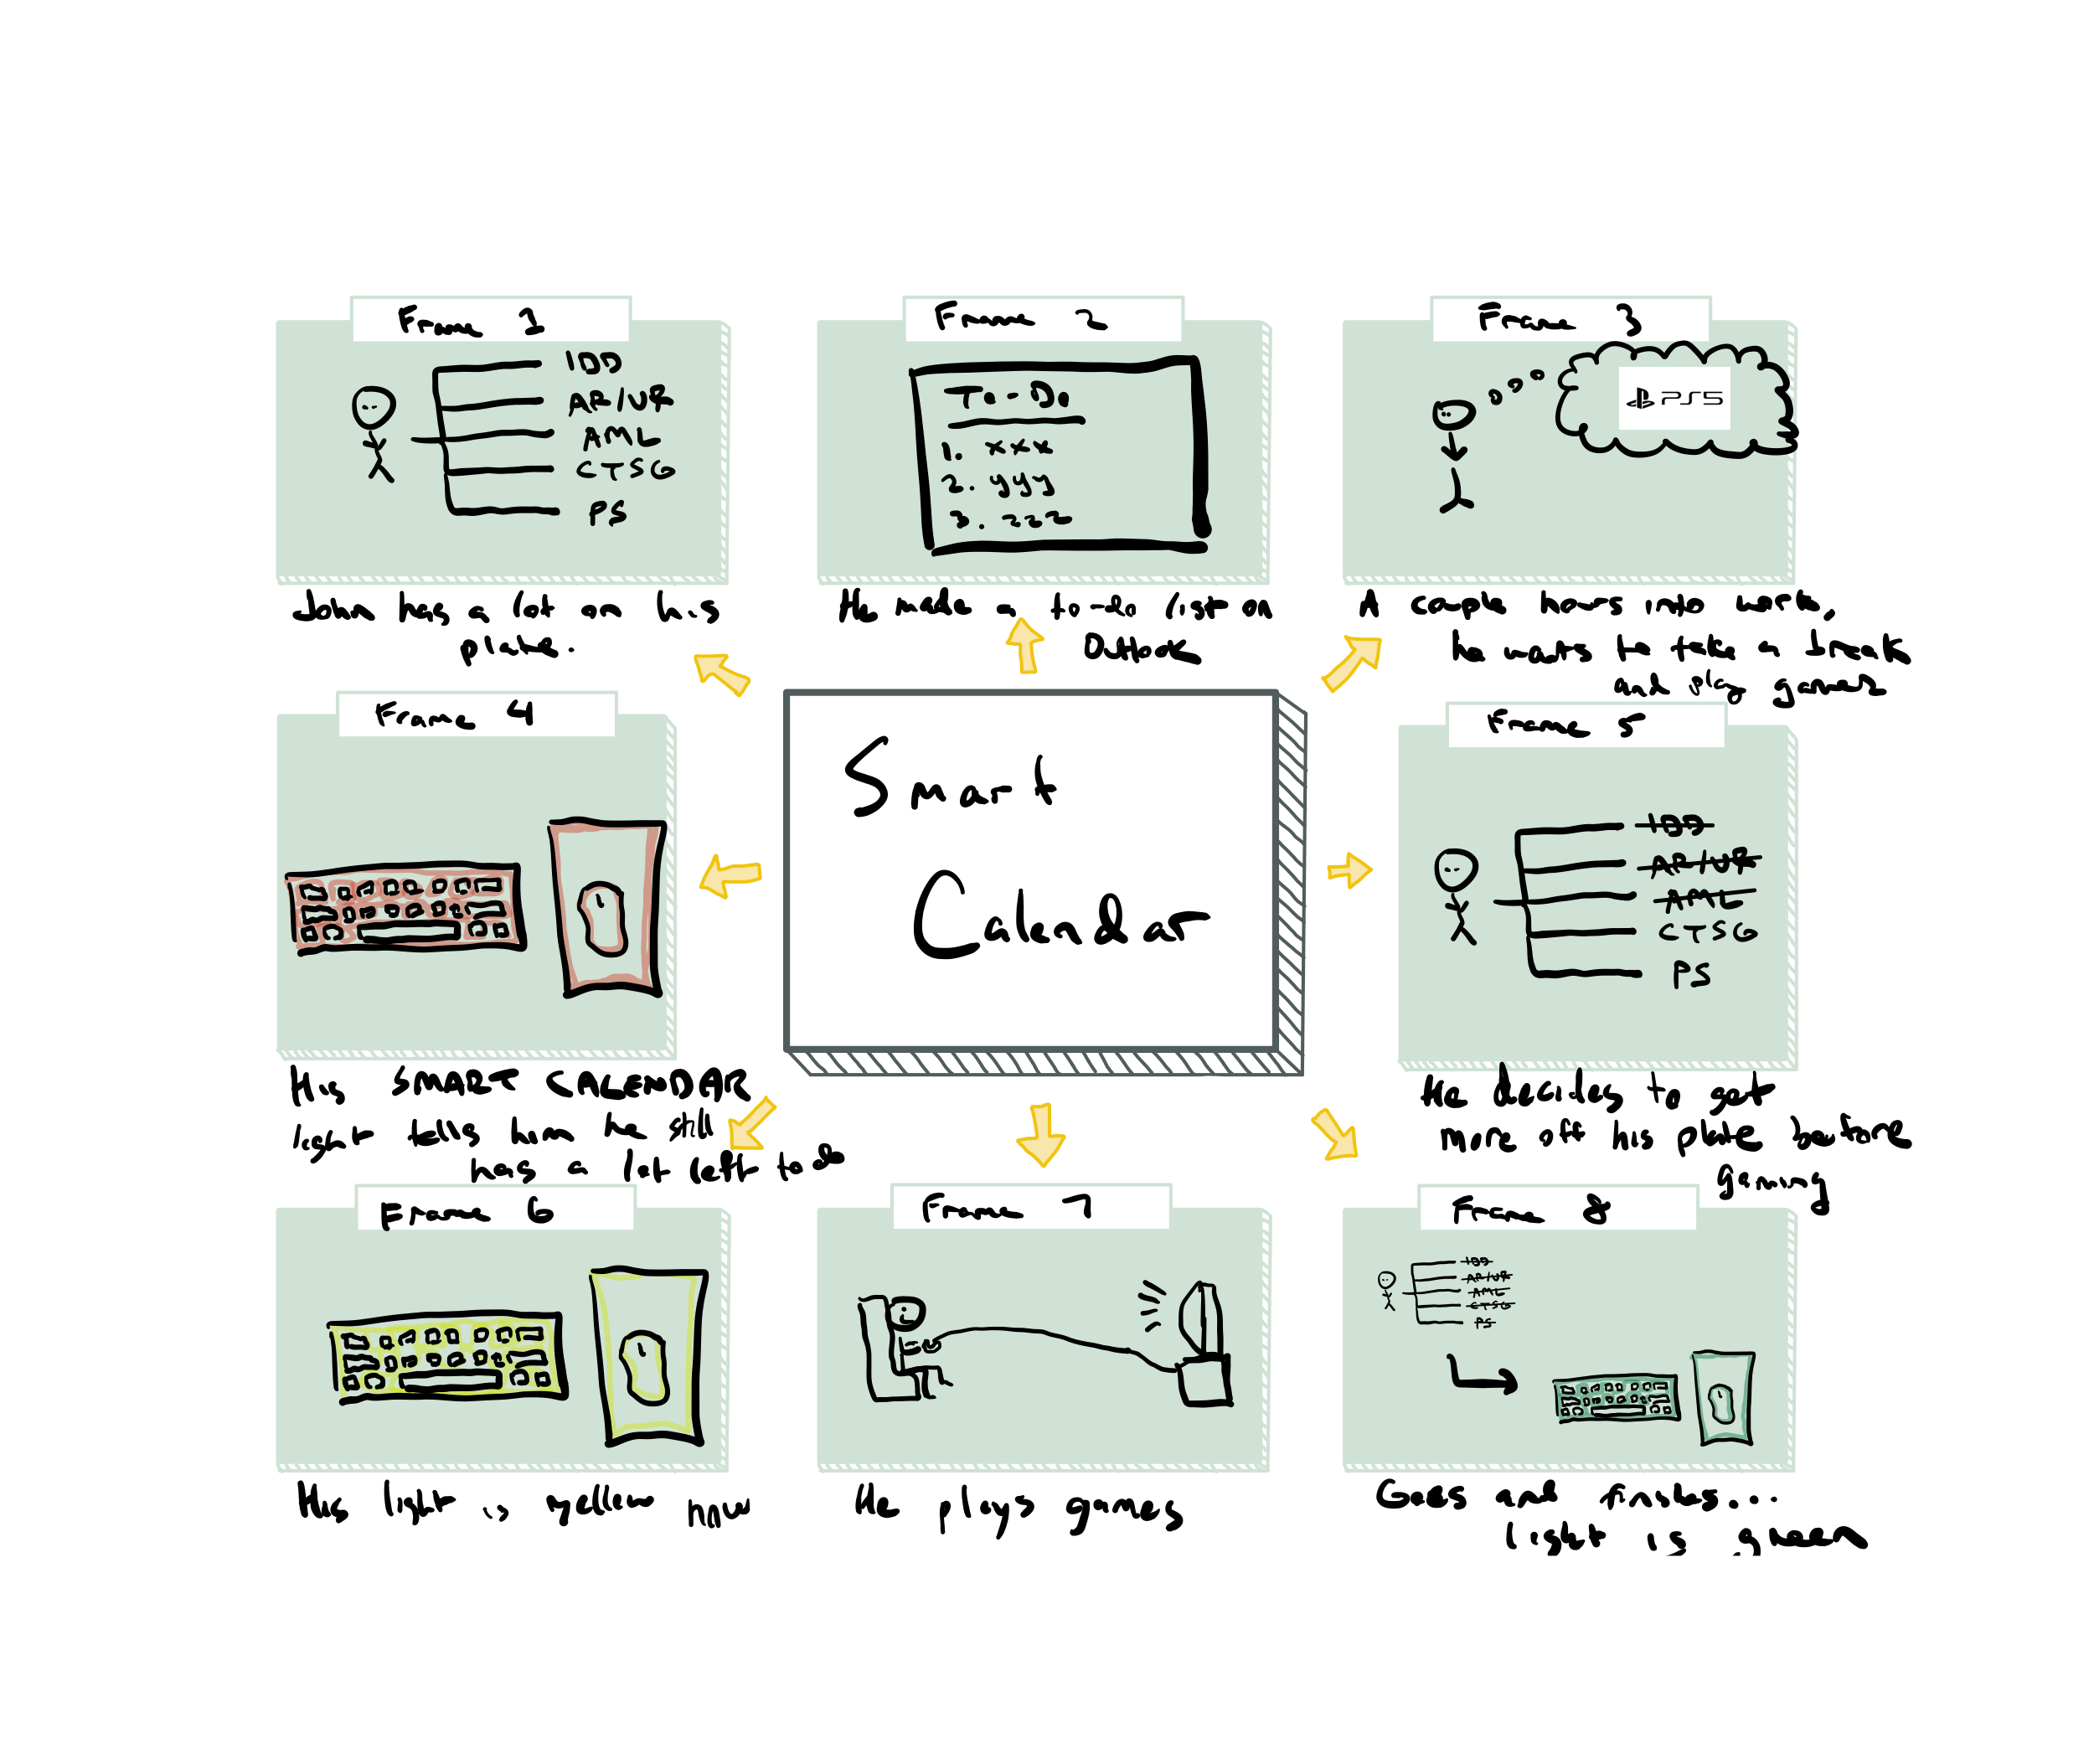 Frame 1
IDD
AR/VR
AML
CTSG
PS
John has a lot on his
plate.
Frame 2
To-Do
1. xxx
2. yyy
3. zzz
He made a to-do list on
Outlook
Frame 3
PS5
A couple hours into work,
he wants to take a break
and play games
Smart
Calendar
Frame 4
His SMART CALENDAR
light tells him he still
has a lot left to do
Frame 5
IDD
AR/VR
AML
CTSG
PS
He decides to get
more off his plate before
gaming
Frame 6
His light is yellow now
Frame 7
He plays games
Frame 8
IDD
AR/VR
AML
CTSG
PS
Goes and finishes...
light is green